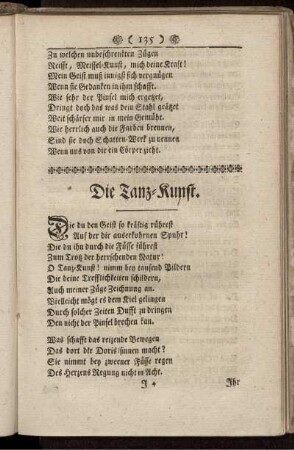 ( 135 )
Zu welchen undeschrenkten Zügen
Reisst, Meissel-Kunst, mich deine Krafft!
Mein Geist muß innigst sich vergnügen
Wenn sie Gedanken in ihm schafft.
Wie sehr der Pinsel mich ergetzet,
Dringt doch das was dein Stahl grätzet
Weit schärfer mir in mein Gemühe.
Wie herrlich auch die Farben brennen,
Sind sie doch Schatten-Werk zu nennen
Wenn uns von die ein Cörper zieht.
Die Tanz-Kunst.
Die du den Geist so kräftig rührest
Auf der dir auserkohrnen Spuhr!
Die du ihn durch die Füsse führest
Zum Trotz der herrschenden Natur!
O Tanz-Kunst! nimm bey tausend Bildern
Die deine Trefflichkeiten schildern,
Auch meiner Züge Zeichnung an.
Vielleicht mögt es dem Kiel gelingen
Durch solcher Zeiten Dufft zu dringen
Den nicht der Pinsel brechen kan.
Was schafft das reizende Bewegen
Das dort die Doris sinnen macht?
Sie nimmt bey zweener Füsse regen
Des Herzens Regung nicht in Acht.
J 4
Ihr